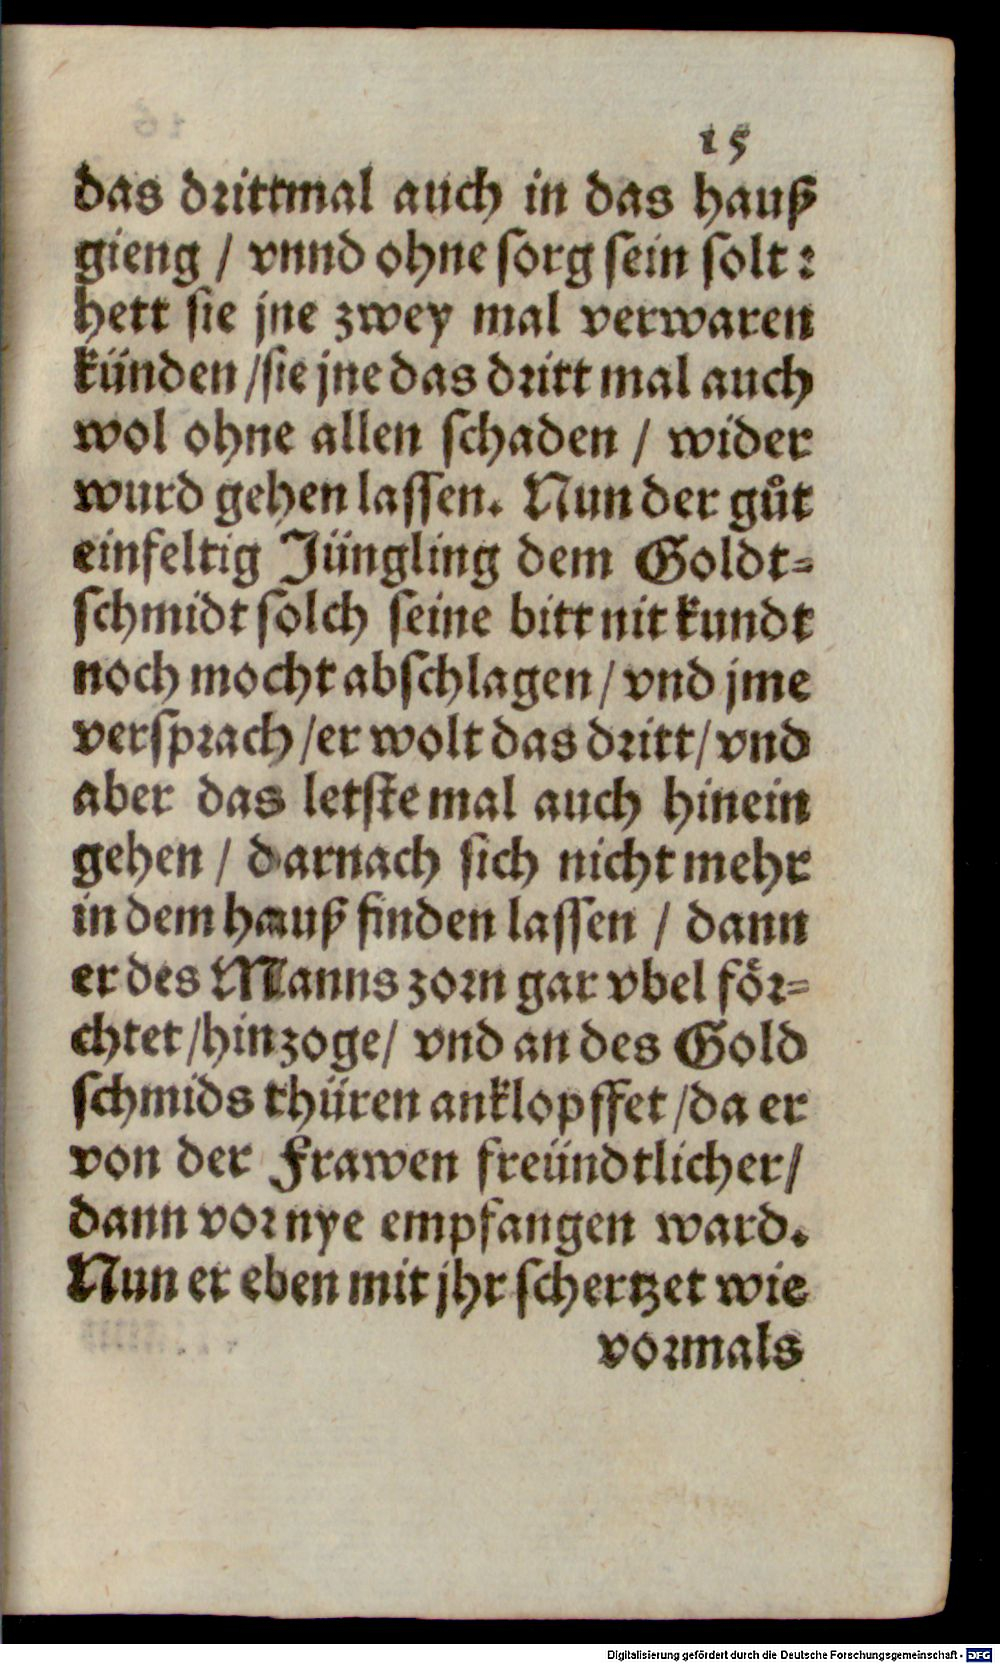 15
das drittmal auch in das hauß
gieng / vnnd ohne sorg sein solt:
hett sie jne zwey mal verwaren
künden /sie jne das dritt mal auch
wol ohne allen schaden / wider
wurd gehen lassen. Nun der gůt
einfeltig Jüngling dem Goldt=
schmidt solch seine bitt nit kundt
noch mocht abschlagen / vnd jme
versprach /er wolt das dritt/ vnd
aber das letste mal auch hinein
gehen / darnach sich nicht mehr
in dem hauß finden lassen / dann
er des Manns zorn gar vbel för=
chtet /hinzoge/ vnd an des Gold
schmids thüren anklopffet /da er
von der Frawen freündtlicher/
dann vor nye empfangen ward.
Nun er eben mit jhr schertzet wie
vormals
Digitalisierung gefördert durch die Deutsche Forschungsgemeinschaft - DFG